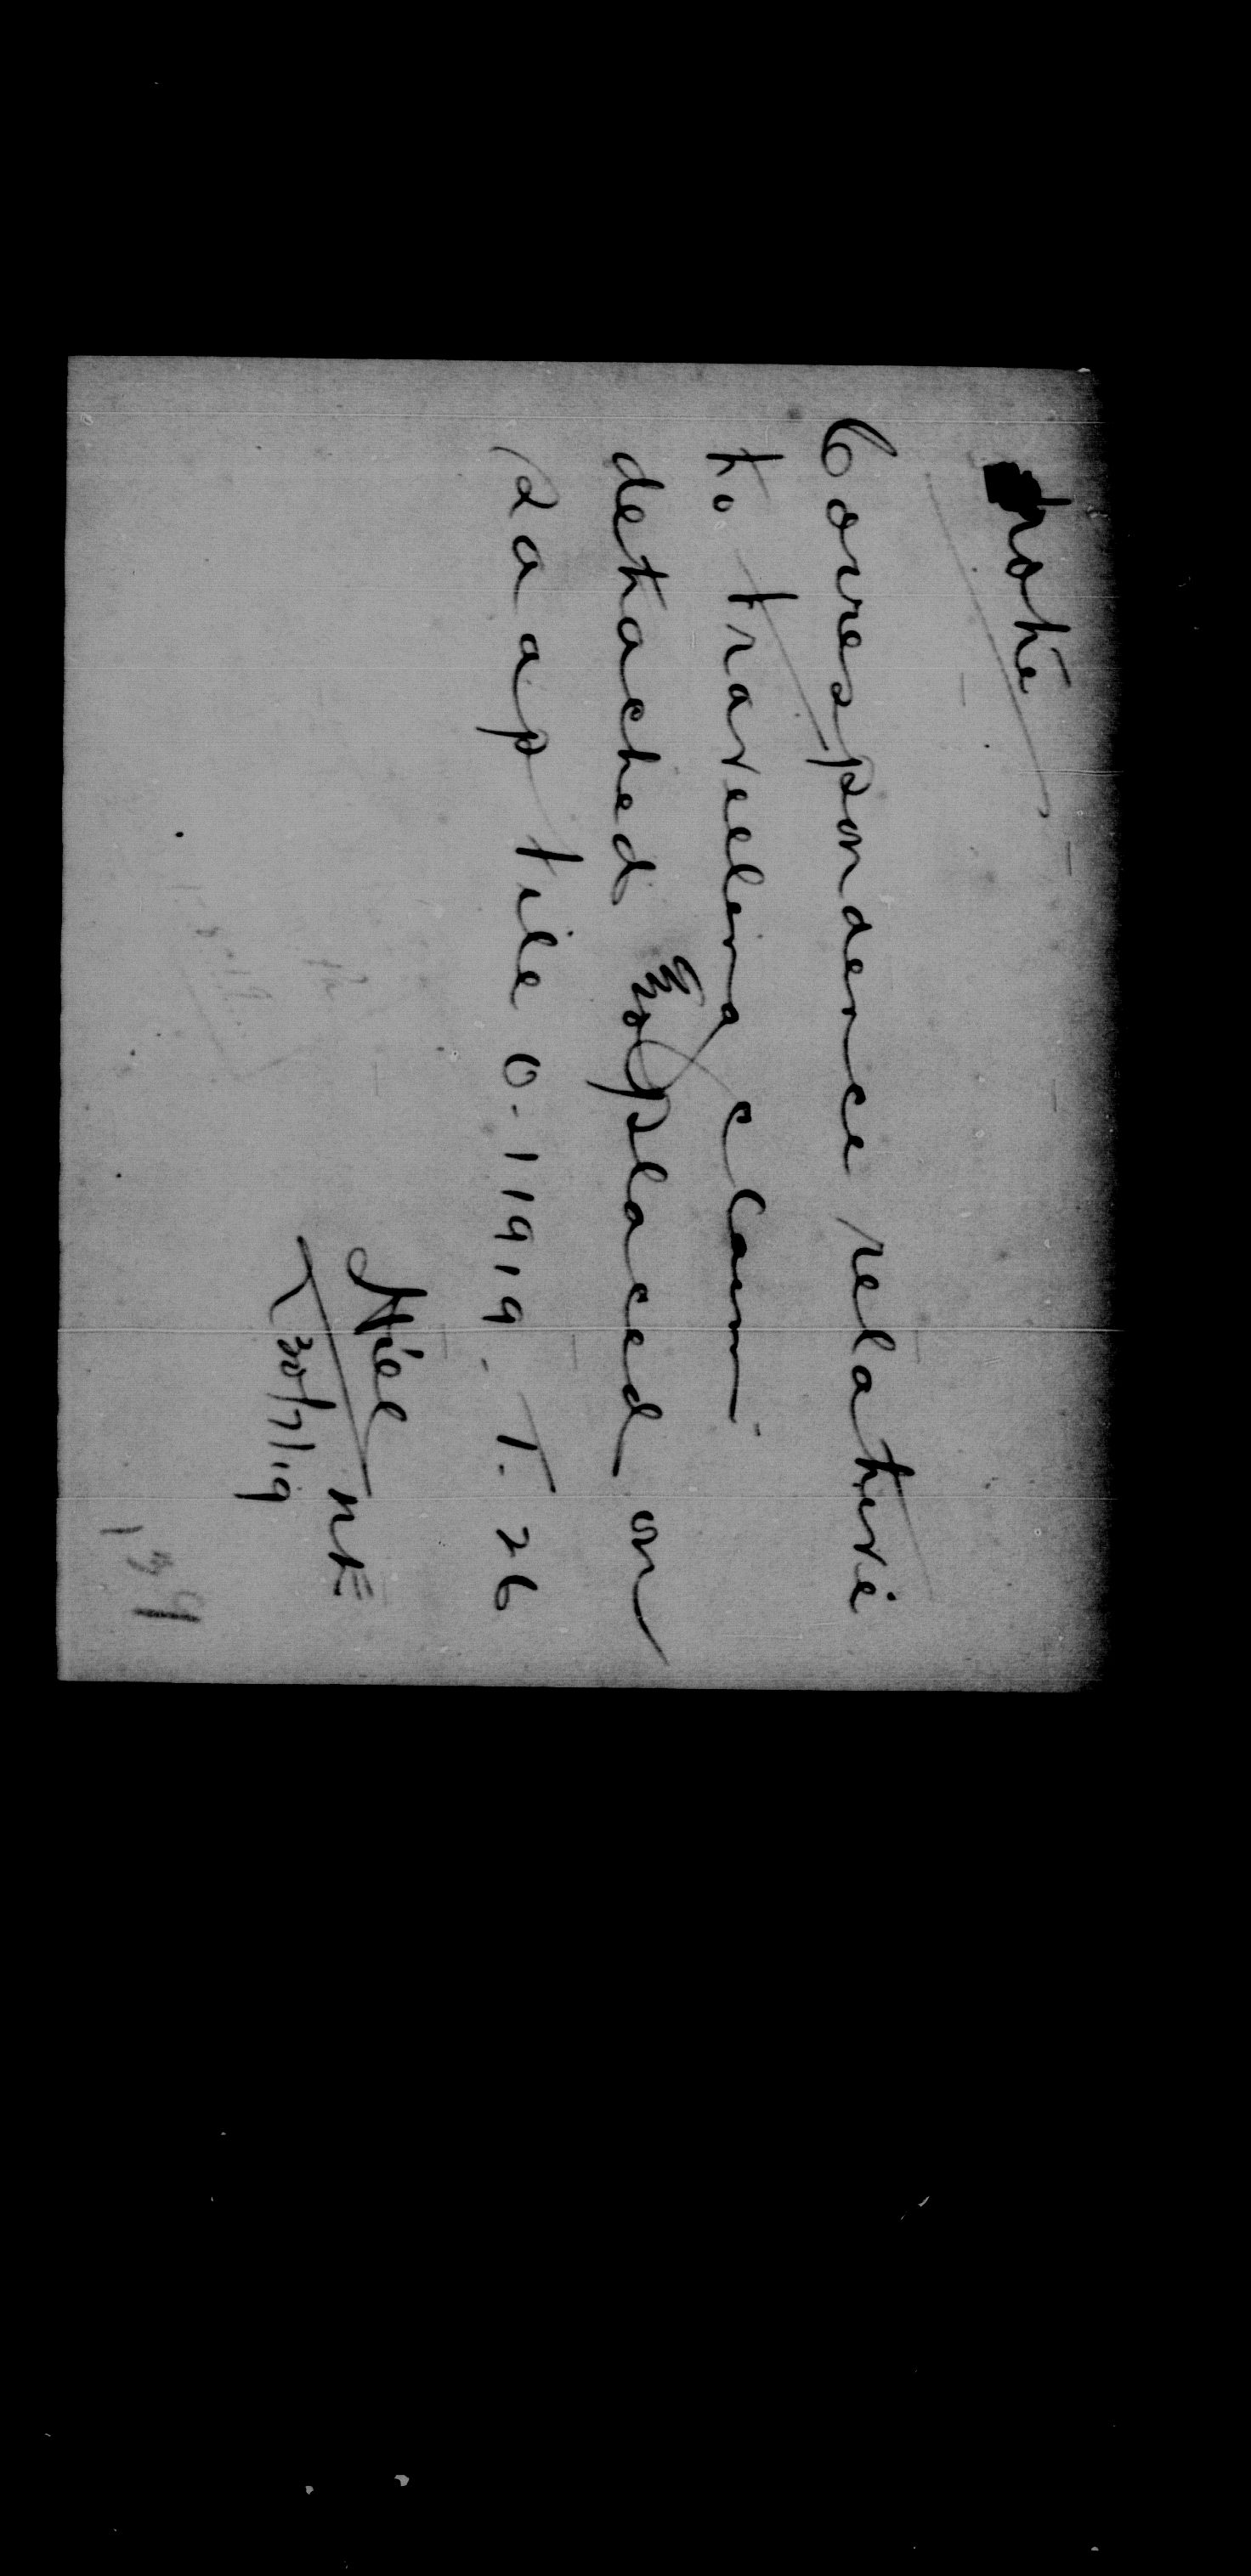 note
Correspondence relative
to travelling claim
detached & placed on
R a a p file 0-11919. T. 26
30/7/19
139